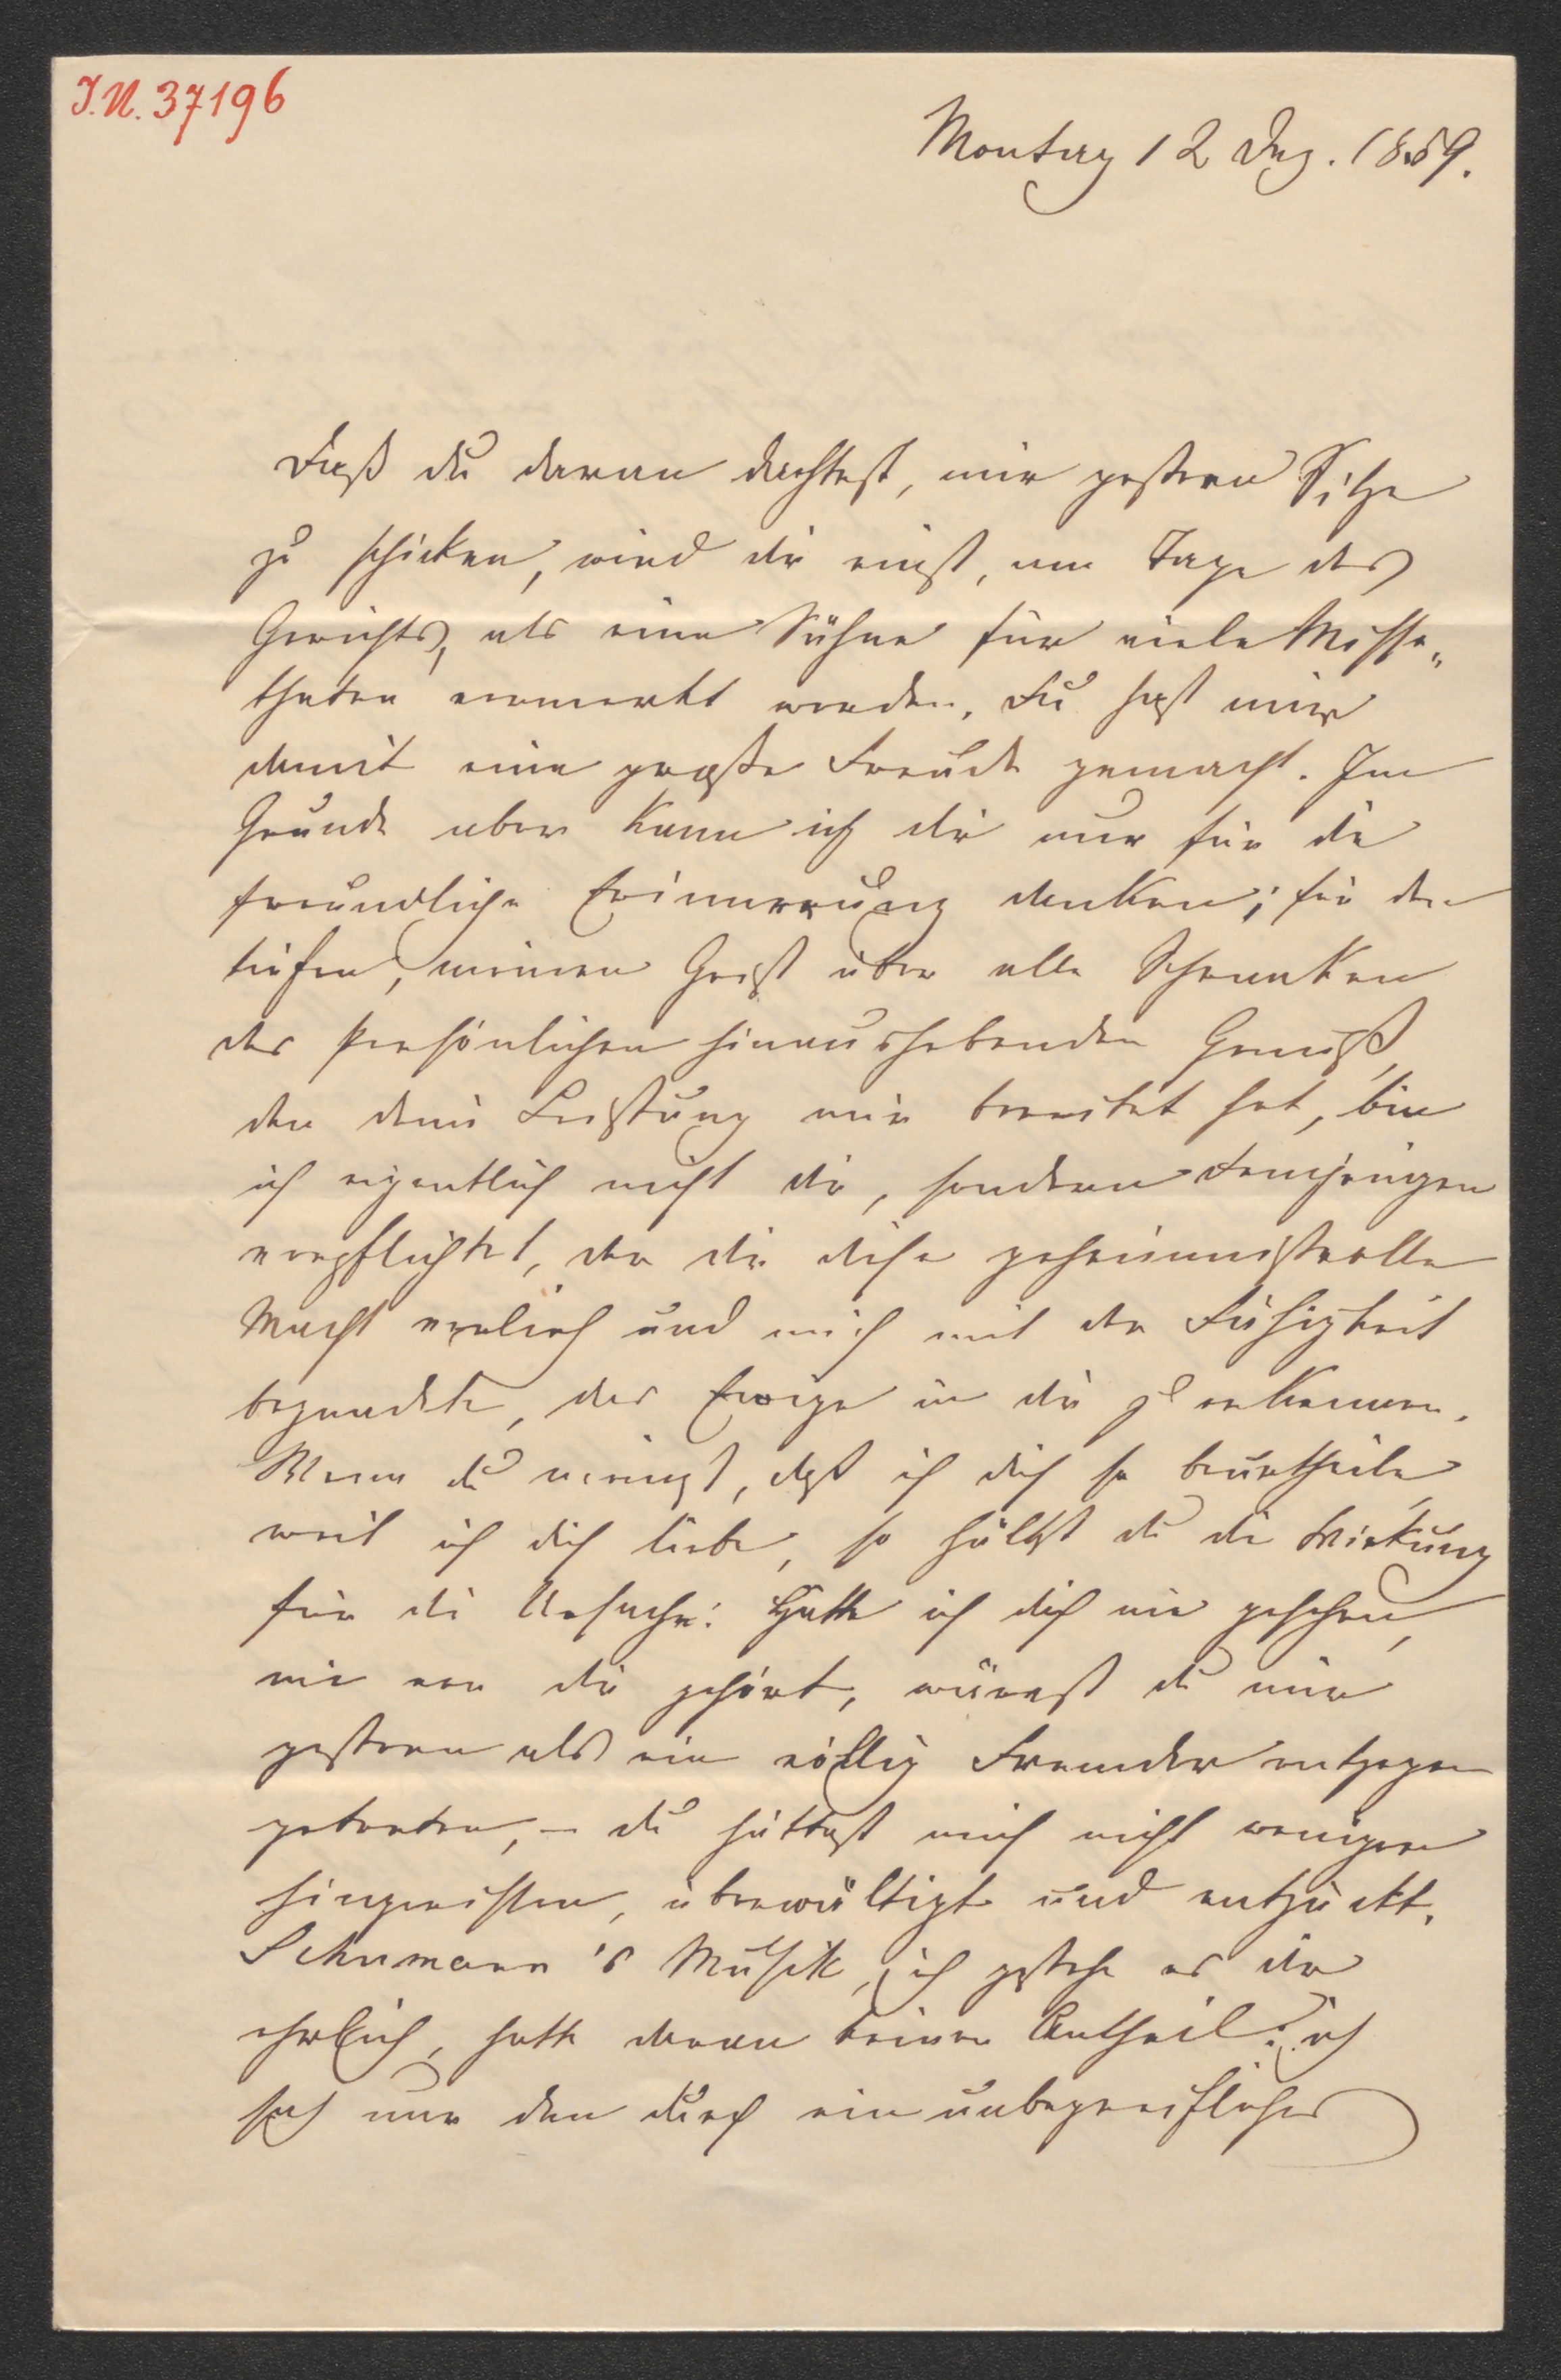 J.N. 37196
Montag 12 Dez. 1859.
Daß du daran dachtest, mir gestern Sitze
zu schicken, wird dir einst, am Tage des
Gerichts, als eine Sühne für viele Misse„
thaten vermerkt werden. Du hast mir
damit eine große Freude gemacht. Im
Grunde aber kann ich dir nur für die
freundliche Erinnerung danken; für den
tiefen, meinen Geist über alle Schranken
des Persönlichen hinaushebenden Genuß,
den deine Leistung mir bereitet hat, bin
ich eigentlich nicht dir, sondern demjenigen
verpflichtet, der dir diese geheimnißvolle
Macht verlieh und mich mit der Fähigkeit
begnadete, das Ewige in dir zu erkennen.
Wenn du meinst, daß ich dich so beurtheile,
weil ich dich liebe, so hältst du die Wirkung
für die Ursache: Hätte ich dich nie gesehen,
nie von dir gehört, wärest du mir
gestern als ein völlig Fremder entgegen
getreten, – du hättest mich nicht weniger
hingerissen, überwältigt und entzückt.
Schumann's Musik, ich gestehe es dir
ehrlich, hatte daran keinen Antheil: ich
sah nur den durch ein unbegreifliches